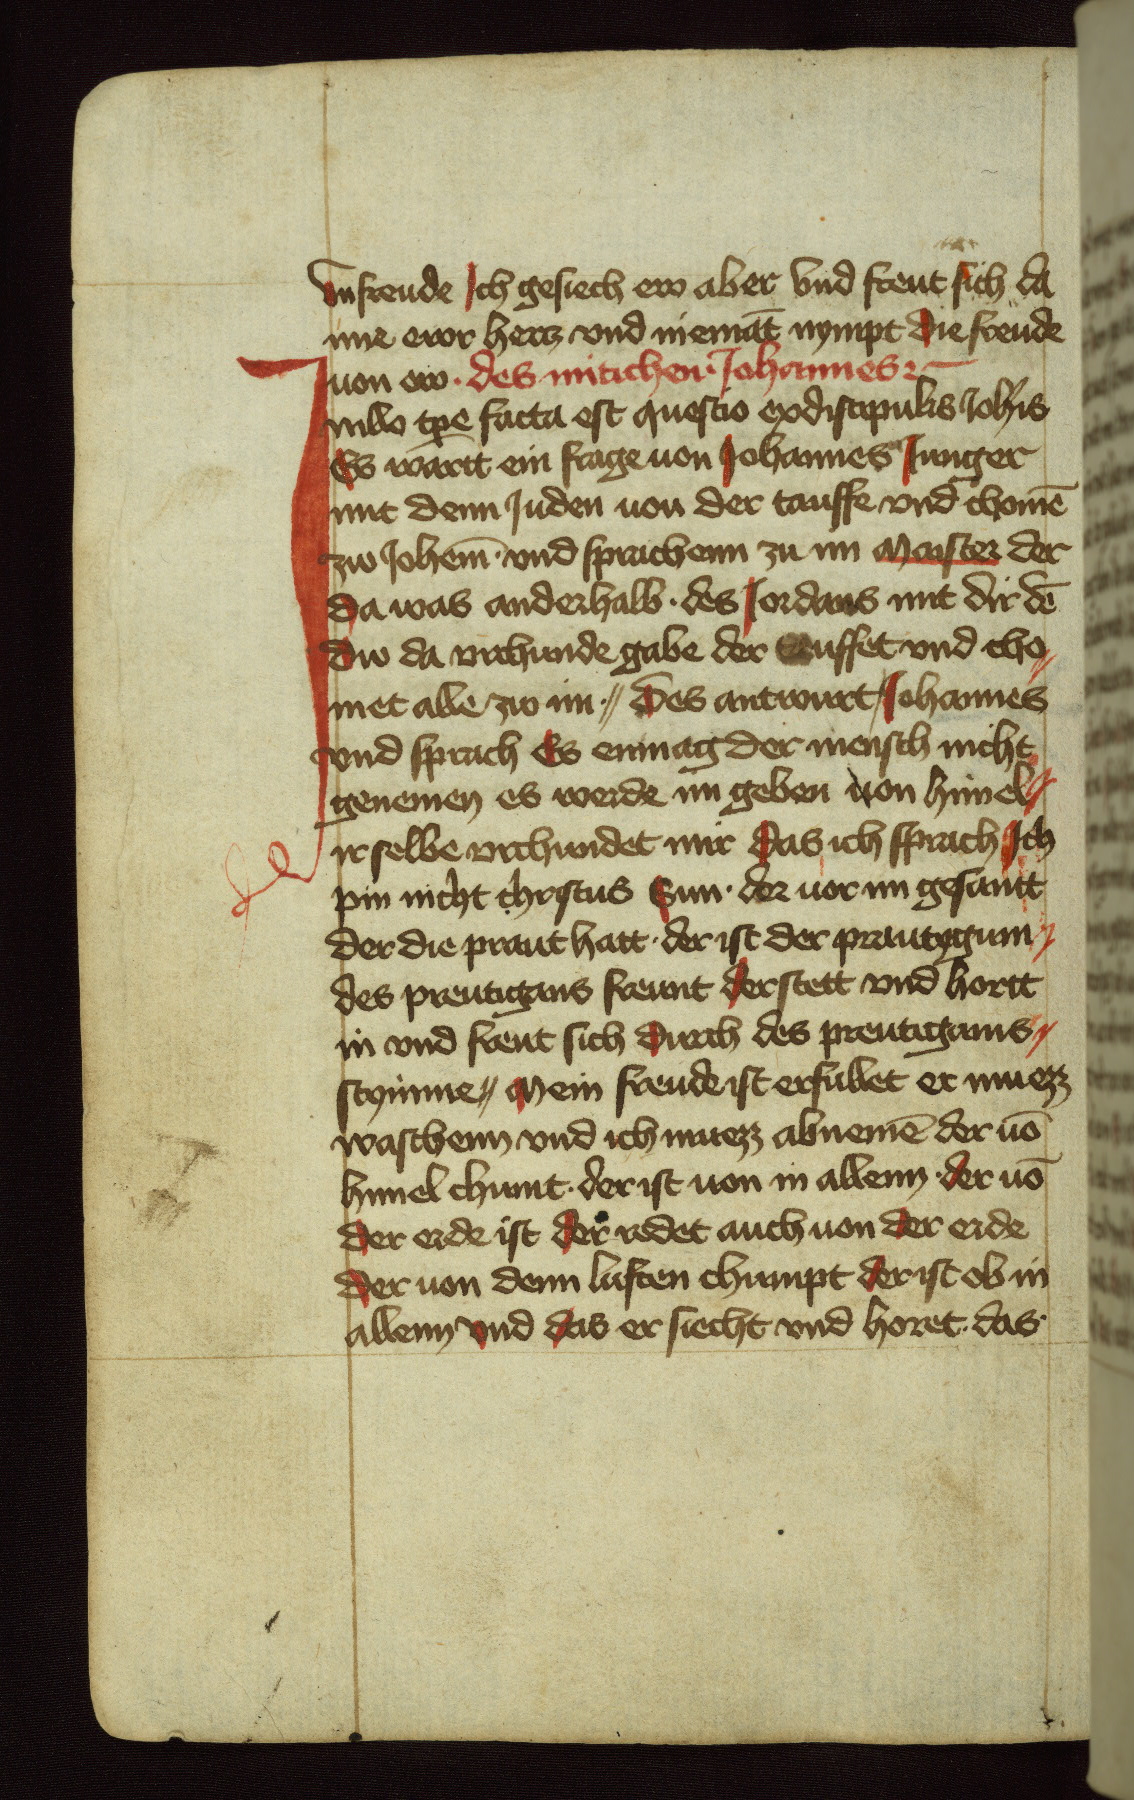 vnfreude Ich gesiech ew aber vnd freut sich da
mie ewr hertz vnd niemāt nympt die freude
uon ew · des mitichen · Johannes
In illo tp̄e facta est questio ex discipulis Joh̄is
Es wartt ein frage uon Johannes Junger
mit denn Juden uon der tauffe vnd chomē
zw Johem̄ · vnd sprachenn zu im Maister der
da was anderhalb · des Jordans mit dir dē
dw da vrchunde gabe der tauffet vnd cho
met alle zw im · // Des antwurt Johannes
vnd sprach Es enmag der mensch nicht
genemen es werde im geben uon himel //
ir selbe vrchundet mir das ich sprach Ich
pin nicht christus Sun · der uor im gesantt
der die praut hatt · der ist der prautygum //
des preutigans freunt der stett vnd hortt
in vnd freut sich durch des preutigams //
stymme // Mein freude ist erfullet er muezz
waschenn vnd ich muezz abnemē der uō
himel chumt · der ist uon in allenn · der uō
der erde ist der redet auch uon der erde
der uon denn luften chumpt der ist ob in
allenn vnd das er siecht vnd horet · das